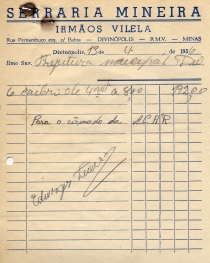 SERRARIA MINEIRA
IRMÃOS VILELA
Rua Pernambuco esq. d/ Bahia - DIVINÓPOLIS - R.M.V. - MINAS
Divinópolis, 13 de 4 de 1956
Ilmo Snr. Prefeitura municipal
6 caibro de 4 mts a 8,00 192,00
Para o comodo da A.C.A.R.